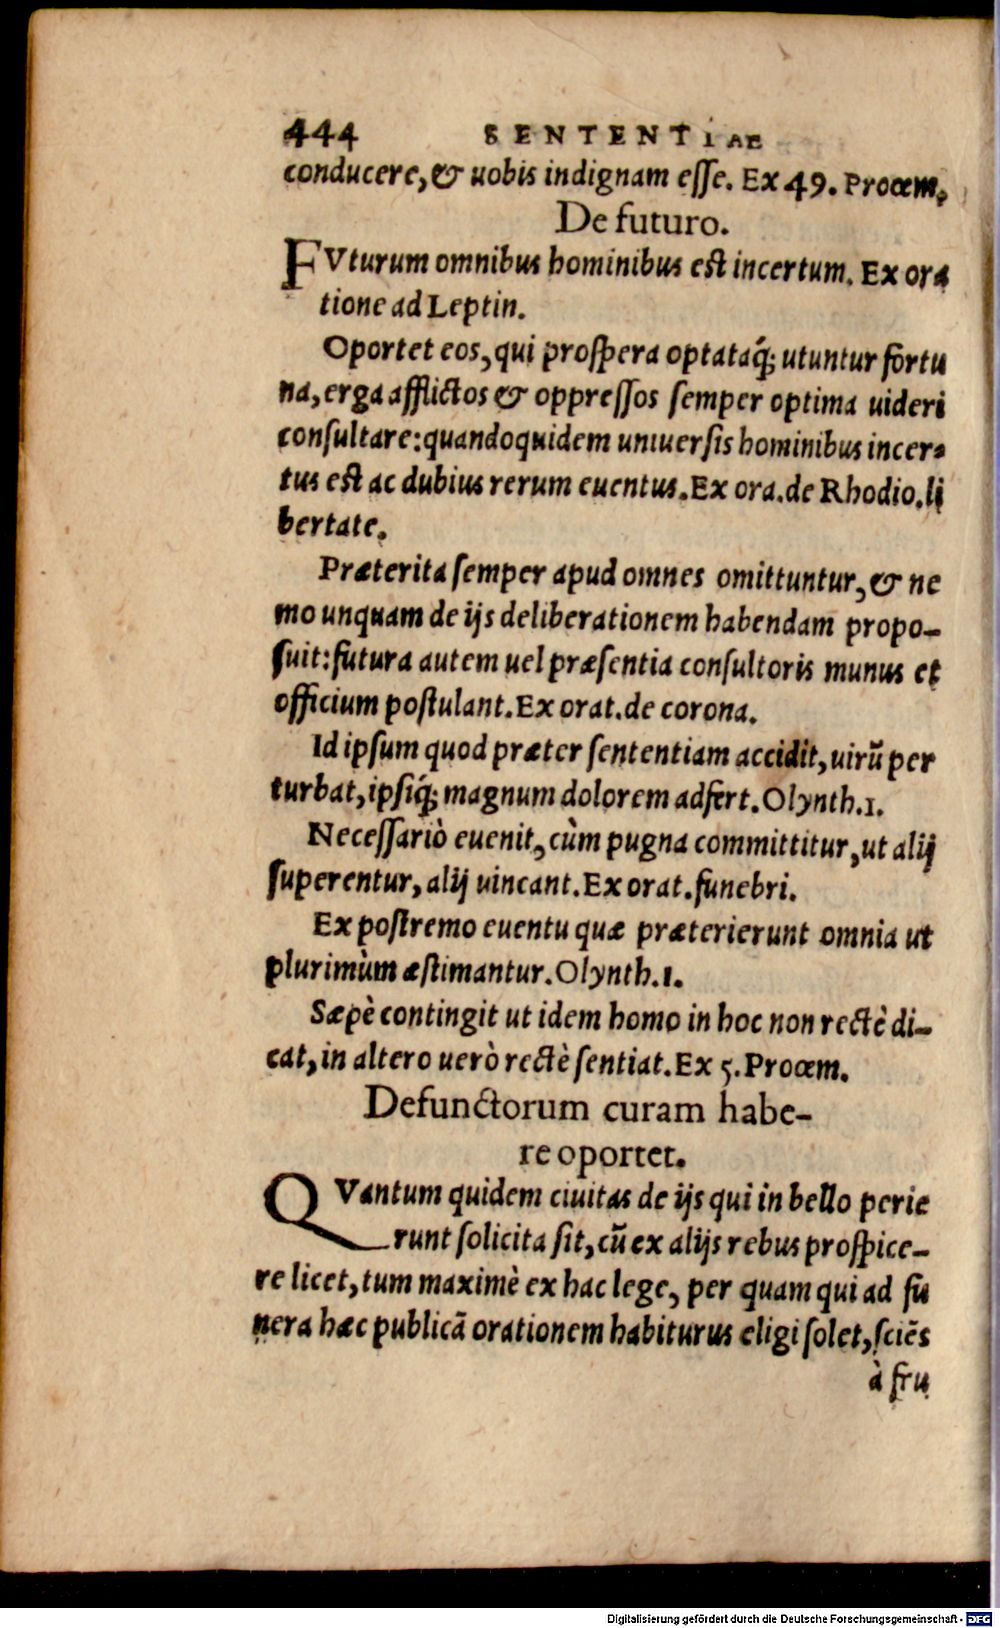 444 SENTENTIAE
conducere, & uobis indignam esse. Ex 49. Proœm.
De futuro.
FVturum omnibus hominibus est incertum. Ex ora
tione ad Leptin.
Oportet eos, qui prospera optataq́; utuntur fortu
na, erga afflictos & oppressos semper optima uideri
consultare: quandoquidem uniuersis hominibus incer-
tus est ac dubius rerum euentus. Ex ora. de Rhodio. li
bertate.
Præterita semper apud omnes omittuntur, & ne
mo unquam de ijs deliberationem habendam propo-
suit: futura autem uel præsentia consultoris munus et
officium postulant. Ex orat. de corona.
Id ipsum quod præter sententiam accidit, uirũ per
turbat, ipsiq́; magnum dolorem adfert. Olynth. 1.
Necessariò euenit, cùm pugna committitur, ut alij
superentur, alij uincant. Ex orat. funebri.
Ex postremo euentu quæ præterierunt omnia ut
plurimùm æstimantur. Olynth. 1.
Sæpè contingit ut idem homo in hoc non rectè di-
cat, in altero uerò rectè sentiat. Ex 5. Proœm.
Defunctorum curam habe-
re oportet.
QVantum quidem ciuitas de ijs qui in bello perie
runt solicita sit, cũ ex alijs rebus prospice-
re licet, tum maximè ex hac lege, per quam qui ad fu
nera hæc publicã orationem habiturus eligi solet, sciẽs
à fru
Digitalisierung gefördert durch die Deutsche Forschungsgemeinschaft - DFG